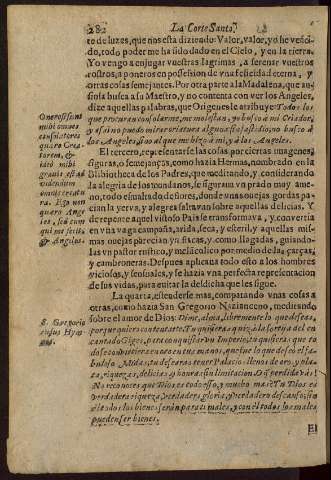 282 La Corte Santa,
to de luzes, que nos esta diziendo: Valor, valor, yo he venci-
do, todo poder me ha sido dado en el Cielo, y en la tierra.
Yo vengo a enjugar vuestras lagrimas, a serenar vuestros
rostros, a poneros en possession de vna felicidad eterna, y
otras cosas semejantes. Por otra parte a la Madalena, que an-
siosa busca a su Maestro, y no contenta con ver los Angeles,
dize aquellas palabras, que Origenes le atribuye: Todos los
que procuran consolarme, me molestan, yo busco a mi Criador,
y assi no puedo mirar criatura alguna sin fastidio; no busco a
los Angeles, sino al que me hizo a mi, y a los Angeles.
El tercero, representarse las cosas por ciertas imagenes,
figuras, o semejanças, como hazia Hermas, nombrado en la
Bibliotheca de los Padres, que meditando, y considerando
la alegria de los mundanos, se figurava vn prado muy ame-
no, todo esmaltado de flores, donde vnas ovejas gordas pa-
cian la yerva, y alegres saltavan sobre aquellas delicias. Y
de repente aquel vistoso Pais se transformava, y convertia
en vna vaga campaña, arida, seca, y esteril, y aquellas mis-
mas ovejas parecian ya flacas, y como llagadas, guiando-
las vn pastor rustico, y melācolico por medio de las çarças,
y cambroneras. Despues aplicava todo esto a los hombres
viciosos, y sensuales, y se hazia vna perfecta representacion
de sus vidas, para evitar la desdicha que les sigue.
La quarta, estenderse mas, comparando vnas cosas a
otras, como hazia San Gregorio Nazianceno, meditando
sobre el amor de Dios: Dime, alma, libremente lo que deseas,
porque quiero contentarte. Tu quisieras quizà la sortija del en-
cantado Giges, para conquistar vn Imperio; tu quisieras que to-
do se convirtiera en oro en tus manos, que fue lo que deseò el fa-
buloso Midas; tu desearas tener Palacio llenos de oro, y pla-
ta, riquezas, delicias, y honras sin limitacion. O què perdida vàs!
No reconoces que Dios es todo esso, y mucho mas? Tu Dios es
verdadera riqueza, verdadera gloria, y verdadero descanso; sin
èl todos los bienes seràn para ti males, y con èl todos los males
pueden ser bienes.
El
Onerosi sunt
mihi omnes
consolatores
quæro Crea-
torem, &
ideò mihi
gravis est ad
videndum
omnis creatu-
ra. Ego non
quæro Ange-
los, sed eum
qui me fecit,
& Angelos.
S. Gregorio